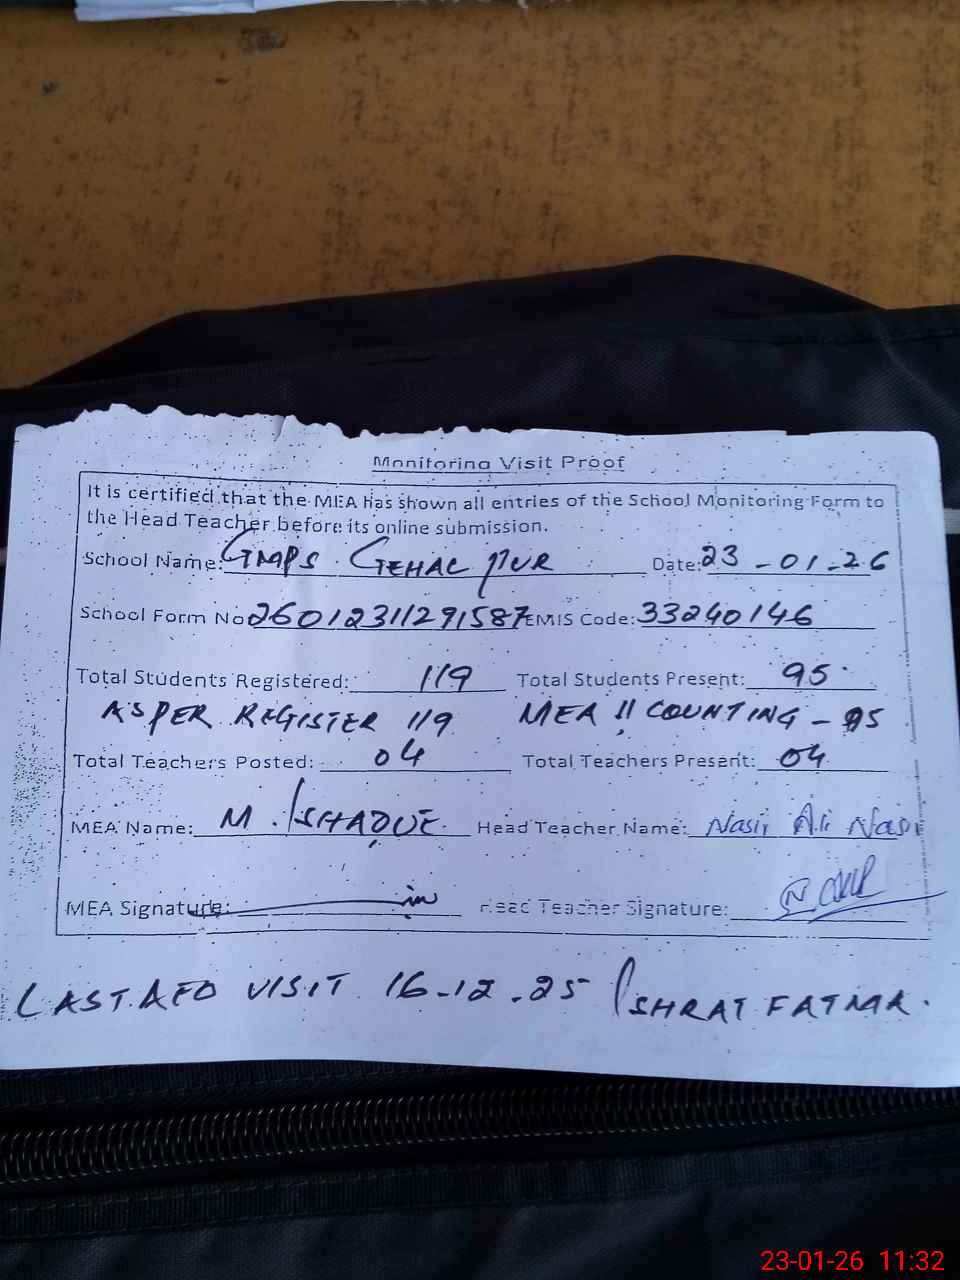 Monitoring Visit Proof
It is certified that the MEA has shown all entries of the School Monitoring Form to
the Head Teacher before its online submission.
School Name: GMPS. GEHAL PUR Date: 23-01-26
School Form No 26012311291587 EMIS Code: 33240146
Total Students Registered: 119 Total Students Present: 95
AS PER REGISTER 119 MEA !! COUNTING - 95
Total Teachers Posted: 04 Total Teachers Present: 04
MEA Name: M. ISHAQUE. Head Teacher Name: Nasir Ali Nasir
MEA Signature: Head Teacher Signature:
LAST. AEO VISIT 16-12-25 ISHRAT FATMA.
23-01-26 11:32